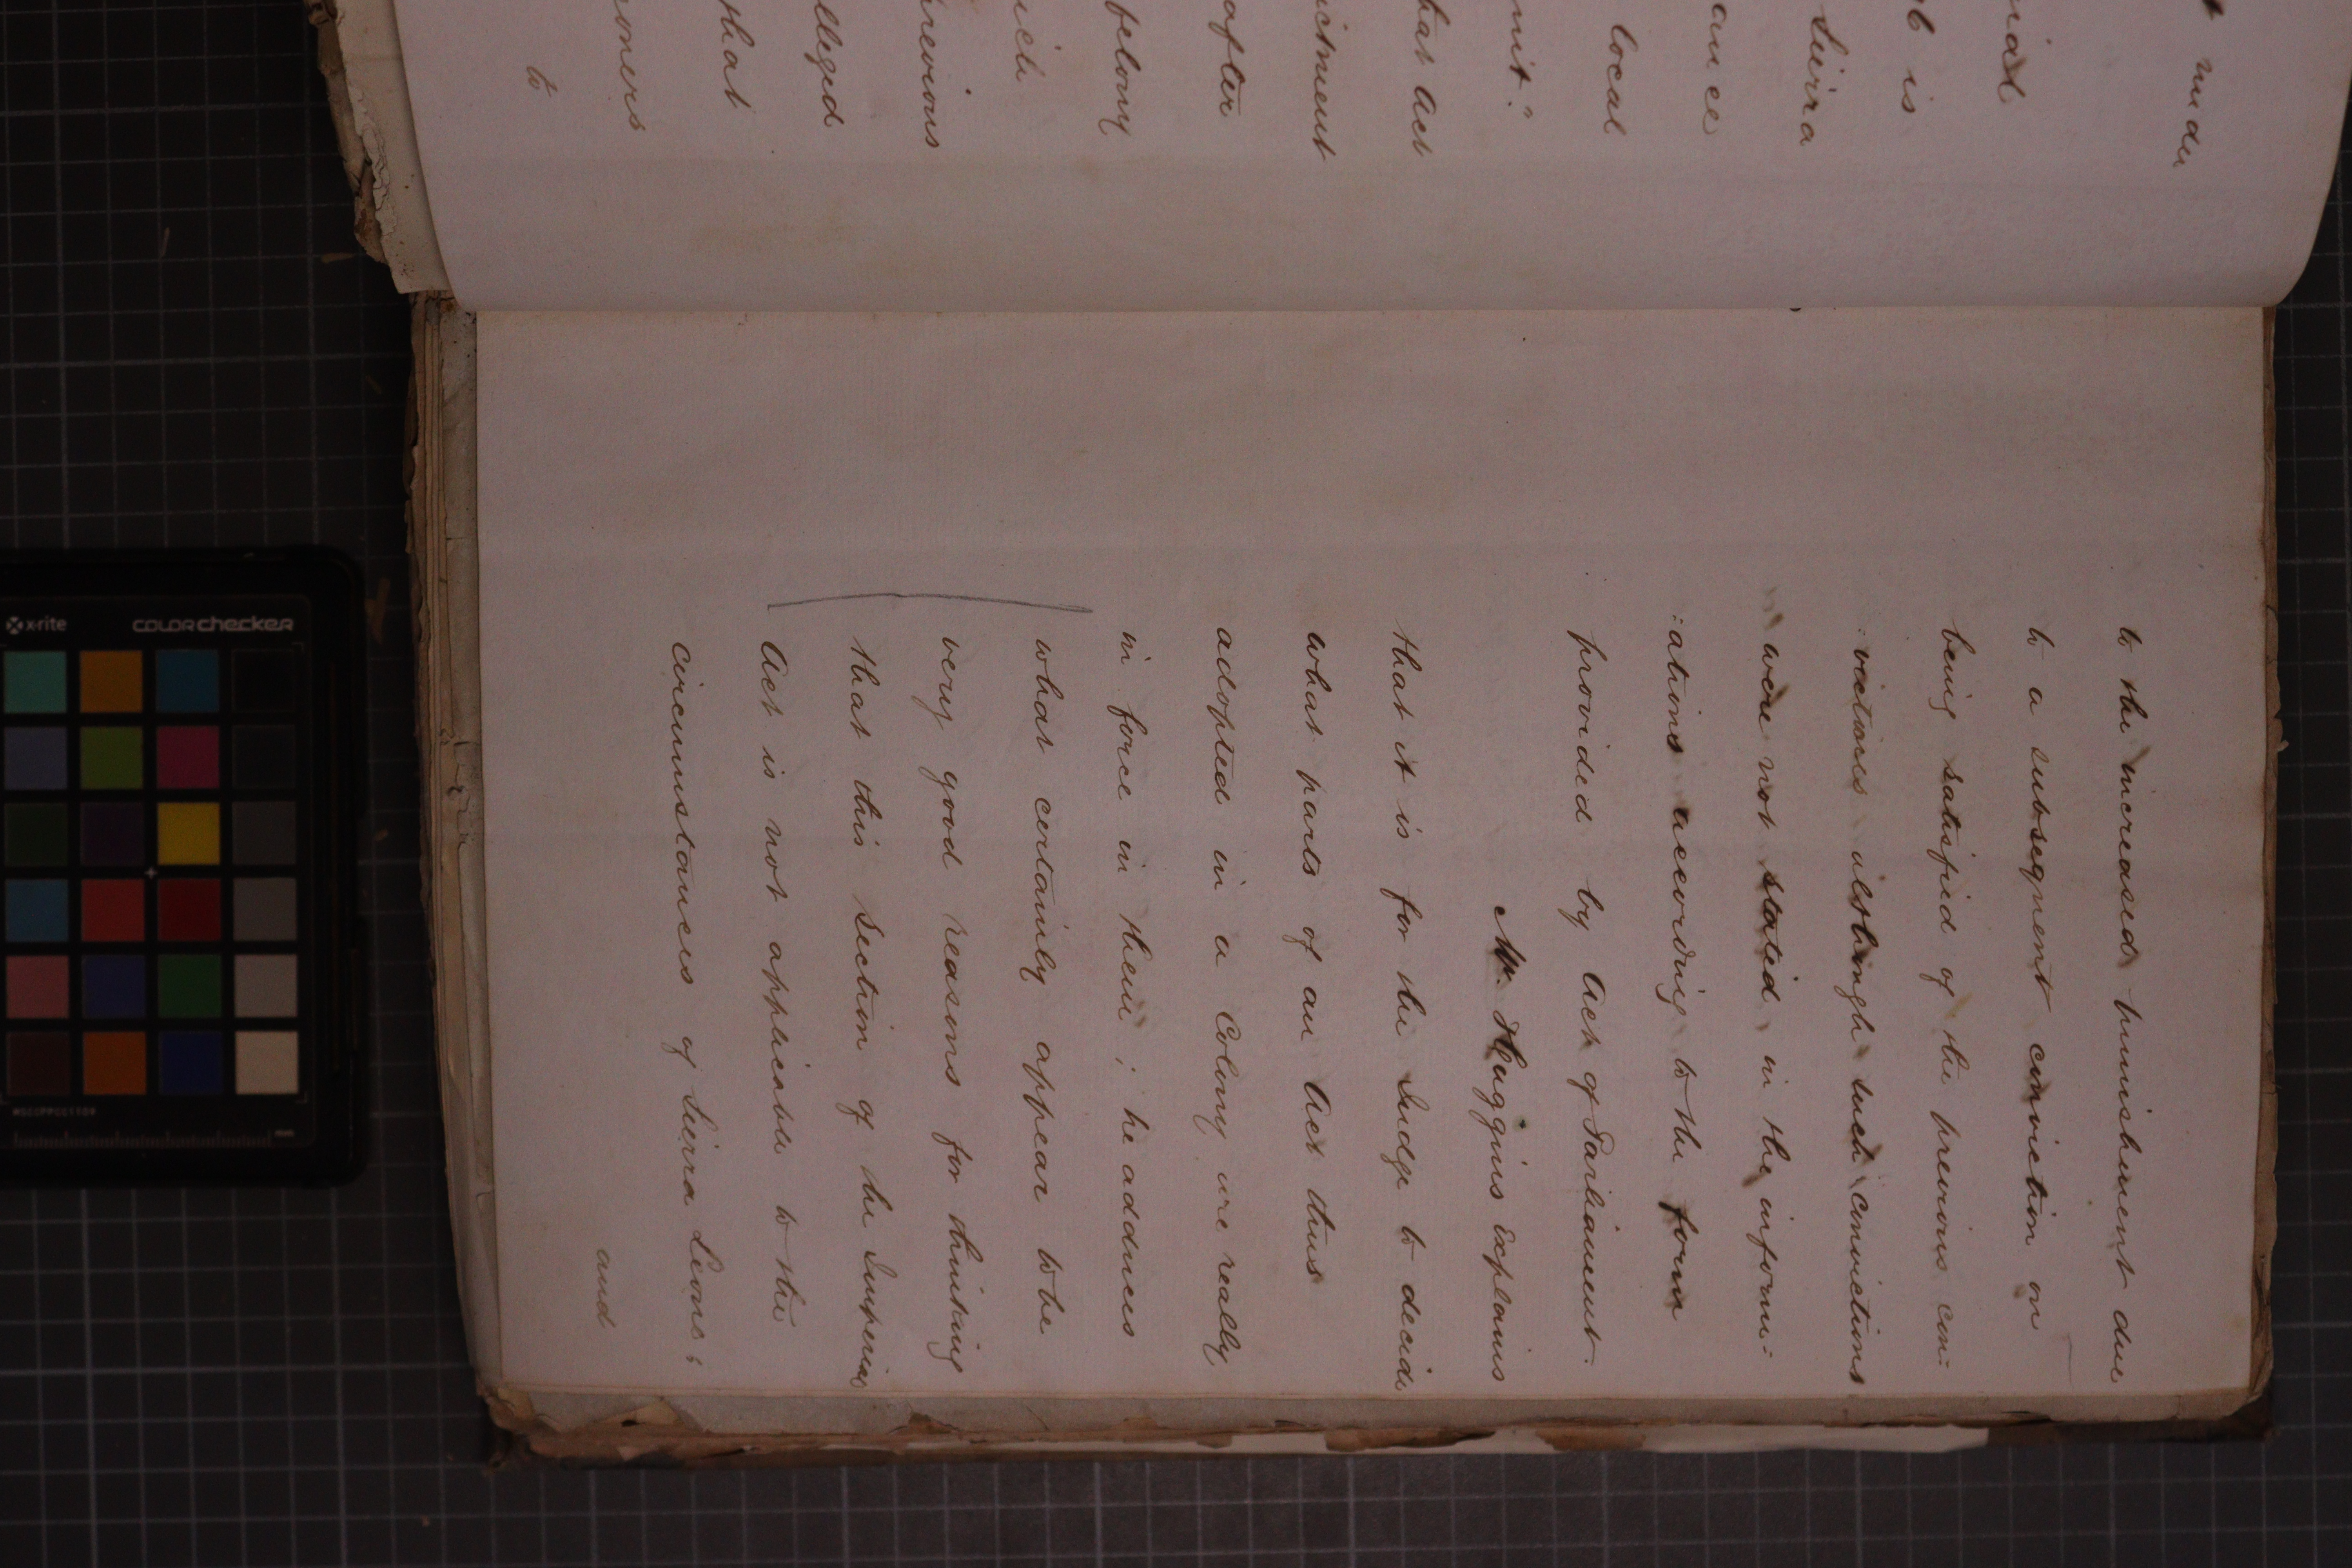 t under
rial
b is
Sierra
ance
local
mit."
hat Act
ictment
after
belong
ich
revious
lleged
that
oners
to
to the increased punishment due
to a subsequent conviction on
being satisfied of the previous con=
:victions although such convictions
were not stated in the inform=
:ations according to the form
provided by Act of Parliament.
Mr. Huggins explains
that it is for the Judge to decide
what parts of an Act thus
adopted in a Colony are really
in force in them; he adduces
what certainly appear to be
very good reasons for thinking
that this section of the Imperial
Act is not applicable to the
circumstances of Sierra Leone;
and
x-rite
colorchecker